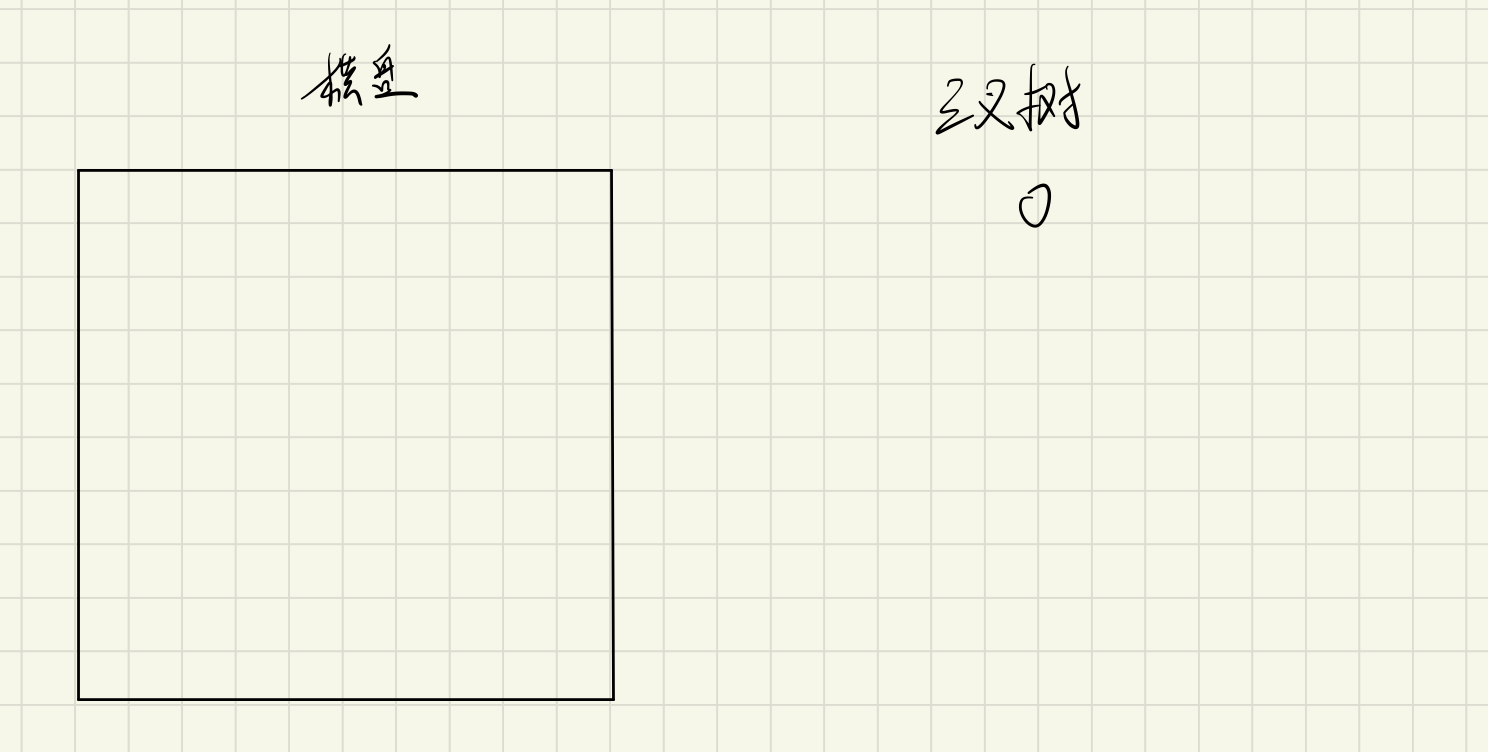 棋盘
三叉树
O